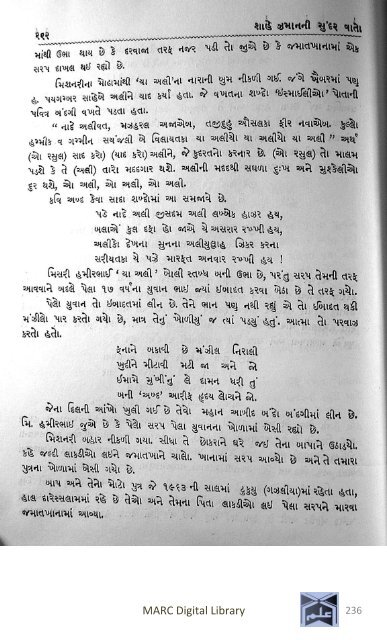 ૨૧૨ શાહે ઝમાનની સુંદર વાતો
માંથી ઉભા થાય છે કે દરવાજા તરફ નજર પડી તો જુએ છે કે જમાતખાનામાં એક
સરપ દાખલ થઈ રહ્યો છે.
મિશનરીના મોઢામાંથી ‘યા અલી’ના નારાની બુમ નીકળી ગઈ. જંગે ખૈબરમાં પણ
હ. પયગમ્બર સાહેબે અલીને યાદ કર્યા હતા. જે વખતના શબ્દો ઈસ્માઈલીઓ પોતાની
પવિત્ર બંદગી વખતે પડતા હતા.
“ નાદે અલીયત, મઝહરલ અજાએબ, તજીદ્દુહુ ઔસલકા ફીર નવાએબ. કુલ્લો
હમ્મીક વ ગમ્મીન સયંજલી બે વિલાયતકા યા અલીયો યા અલીયો યા અલી ” અર્થ
(એ રસુલ) સાદ કરો (યાદ કરો) અલીને, જે કુદરતનો કરનાર છે. (એ રસુલ) તો માલમ
પડશે કે તે (અલી) તારા મદદગાર થશે. અલીની મદદથી સઘળા દુઃખ અને મુશ્કેલીઓ
દુર થશે, એ અલી, એ અલી, એ અલી.
કવિ અણ્ડ કેવા સાદા શબ્દોમાં આ સમજાવે છે.
પડે નાદે અલી જીસદમ અલી લબ્બૈક હાઝર હય,
બલાએં કુલ દફા હો જાએ યે અસરાર રખ્ખી હય,
અલીકો દેખના સુનના અલીયુલ્લાહ ઝિકર કરના
સરીયતકા યે પડે મારફત અનવાર રખ્ખી હય !
મિસરી હમીરભાઈ ‘ યા અલી ’ બોલી સ્તબ્ધ બની ઉભા છે, પરંતુ સરપ તેમની તરફ
આવવાને બદલે પેલા ૧૭ વર્ષના યુવાન ભાઈ જ્યાં ઈબાદત કરવા બેઠા છે તે તરફ ગયો.
પેલો યુવાન તો ઈબાદતમાં લીન છે. તેને ભાન પણ નથી રહ્યું એ તો ઈબાદત થકી
મંઝીલો પાર કરતો ગયો છે, માત્ર તેનું ખોળીયું જ ત્યાં પડ્યું હતું. આત્મા તો પરવાઝ
કરતો હતો.
ફનાને બકાવી છે મંઝીલ નિરાલી
ખુદીને મીટાવી મટી જા અને જો
ઈમામે મુબીનું લે દામન ધરી તું
બની ‘અણ્ડ’ આરીફ હૃદય લોચને જો.
જેના દિલની આંખો ખુલી ગઈ છે તેવો મહાન આબીદ બંદો બંદગીમાં લીન છે.
મિ. હમીરભાઈ જુએ છે કે પેલો સરપ પેલા યુવાનના ખોળામાં બેસી રહ્યો છે.
મિશનરી બહાર નીકળી ગયા. સીધા તે છોકરાને ઘરે જઈ તેના બાપાને ઉઠાડ્યો.
કહે જલ્દી લાકડીઓ લઈને જમાતખાને ચાલો. ખાનામાં સરપ આવ્યો છે અને તે તમારા
પુત્રના ખોળામાં બેસી ગયો છે.
બાપ અને તેનો મોટો પુત્ર જે ૧૯૬૩ ની સાલમાં ટુકુયુ (ગઝલીયા)માં રહેતા હતા,
હાલ દારેસ્સલામમાં રહે છે તેઓ અને તેમના પિતા લાકડીઓ લઈ પેલા સરપને મારવા
જમાતખાનામાં આવ્યા.
MARC Digital Library 236